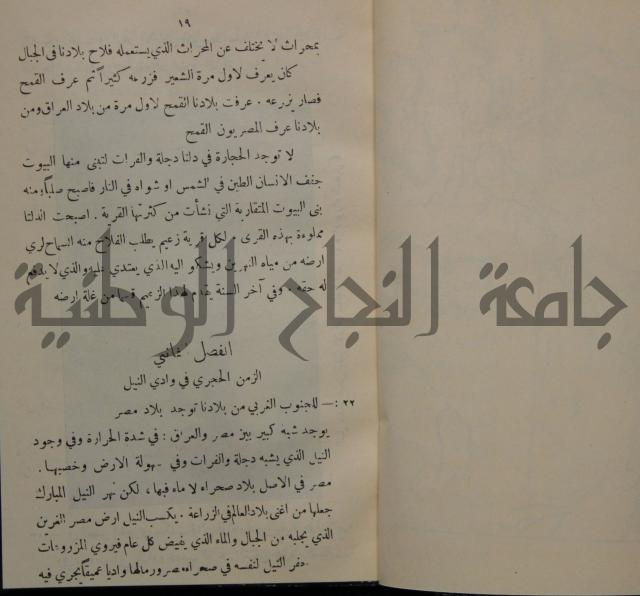 ١٩
بمحراث لا يختلف عن المحراث الذي يستعمله فلاح بلادنا في الجبال
كان يعرف لاول مرة الشعير فزرعه كثيراً ثم عرف القمح
فصار يزرعه . عرفت بلادنا القمح لاول مرة من بلاد العراق ومن
بلادنا عرف المصريون القمح
لا توجد الحجارة في دلتا دجلة والفرات لتبنى منها البيوت
جفف الانسان الطين في الشمس او شواه في النار فاصبح صلباً ومنه
بنى البيوت المتقاربة التي نشأت من كثرتها القرية . اصبحت الدلتا
مملوءة بهذه القرى ولكل قرية زعيم يطلب الفلاح منه السماح لري
ارضه من مياه النهرين ويشكو اليه الذي يعتدي عليه والذي لا يدفع
له حقه وفي آخر السنة يقدم لهذا الزعيم قسما من غلة ارضه
الفصل الثاني
الزمن الحجري في وادي النيل
٢٢ :— للجنوب الغربي من بلادنا توجد بلاد مصر
يوجد شبه كبير بين مصر والعراق : في شدة الحرارة وفي وجود
النيل الذي يشبه دجلة والفرات وفي سهولة الارض وخصبها .
مصر في الاصل بلاد صحراء لا ماء فيها ، لكن نهر النيل المبارك
جعلها من اغنى بلاد العالم في الزراعة . يكسب النيل ارض مصر الغرين
الذي يجلبه من الجبال والماء الذي يفيض كل عام فيروي المزروعات
حفر النيل لنفسه في صحراء مصر ورمالها واديا عميقاً يجري فيه
جامعة النجاح الوطنية